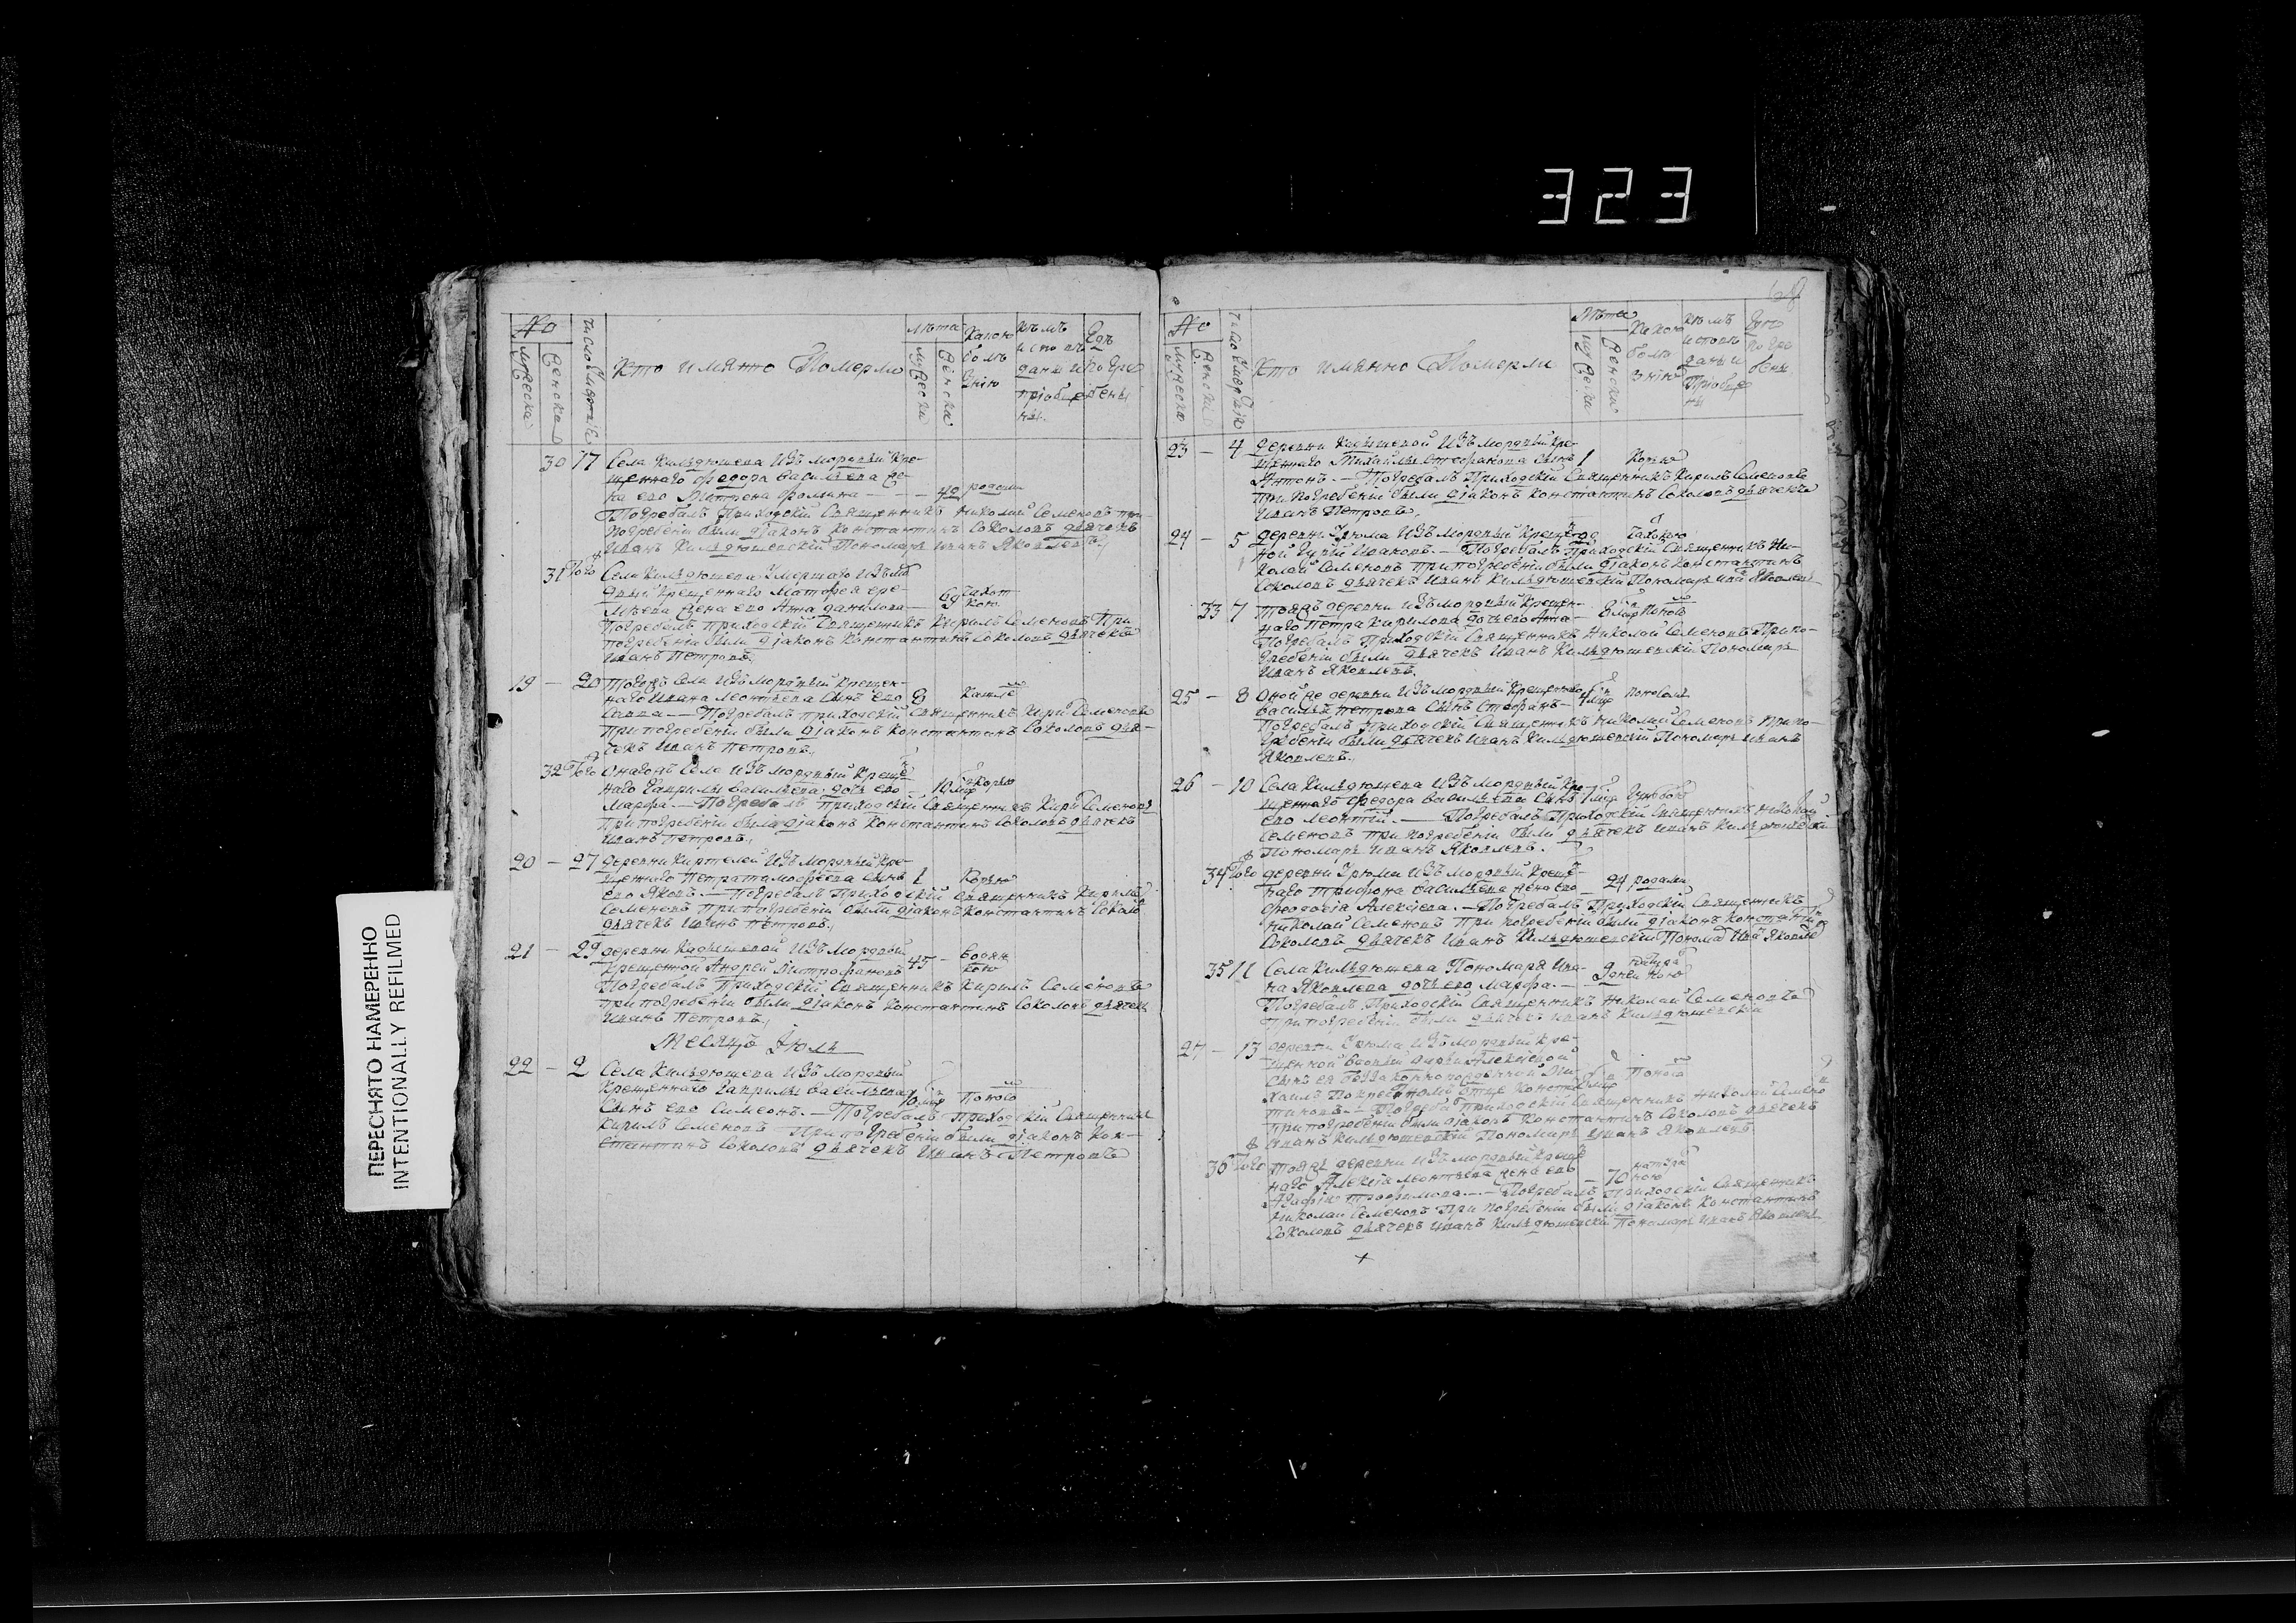 323
ПЕРЕСНЯТО НАМЕРЕННО
INTENTIONALLY REFILMED
No
мужеска
женска
Число
Кто имянно Померли
лѣта
мужески
женски
Какою
болѣ
знію
кѣмъ
исповѣ
даны и
пріобще
ны.
Гдѣ
погре
бены
30 17 Села Кильдюшева Изъ мордвы Кре-
щеннаго Федора Васильева же-
на ево Матрена Фомина — 40 родами
Погребалъ Приходскій Священникъ Николай Семеновъ при
Погребеніи были діаконъ Константинъ Соколовъ дьячекъ
Иванъ Кильдюшевскій Пономарь Иванъ Яковлевъ.
31 Того Села Кильдюшева Умершаго Изъ мо
рдвы Крещеннаго
жена ево Анна Данилова
Погребалъ приходскій Священникъ Кирилъ Семеновъ При
погребеніи были діаконъ Константинъ Соколовъ дьячекъ
Иванъ Петровъ.
19 — 20 Тогожъ Села Изъ мордвы Крещен-
наго Ивана Леонтьева Сынъ ево 8 Кашле
Савва — Погребалъ приходскій Священникъ Кири Семеновъ
При погребеніи были діаконъ Константинъ Соколовъ дья-
чекъ Иванъ Петровъ.
32 Того Онагожъ Села Изъ мордвы Креще
наго Гаврилы Васильева дочь ево 10 Корью
Марфа. — Погребалъ Приходскій Священникъ Кири Семеновъ
При погребеніи были діаконъ Константинъ Соколовъ дьячекъ
Иванъ Петровъ.
20 — 27 деревни Киртелей Изъ Мордвы Кре-
щеннаго Петра Тимофеева сынъ 1 Корью
ево Яковъ. — Погребалъ Приходскій Священникъ Кирилъ
Семеновъ При погребеніи были діаконъ Константинъ Соколо
дьячекъ Иванъ Петровъ.
21 — 29 деревни Кадышевой Изъ Мордвы
Крещеной Андрей Митрофановъ 45 — Водян
кою
Погребалъ Приходскій Священникъ Кирилъ Семеновъ
при погребеніи были діаконъ Константинъ Соколовъ дьячекъ
Иванъ Петровъ.
Месяцъ Июль
22 — 2 Села Кильдюшева Изъ мордвы
Крещеннаго Гаврилы Васильева Поносо
Сынъ ево Симеонъ. — Погребалъ Приходскій Священникъ
Кирилъ Семеновъ При погребеніи были діаконъ Кон-
стантинъ Соколовъ дьячекъ Иванъ Петровъ
No
мужеска
женска
Число
Кто имянно Померли
Лѣта
мужески
женски
Какою
болѣ
знію
кѣмъ
исповѣ
даны и
Пріобще
ны
Гдѣ
погре
бены
23 — 4 деревни Кадышевой Изъ Мордвы Кре-
щеннаго Михайлы Стефанова Сынъ 1 Корью
Антонъ. — Погребалъ Приходскій Священникъ Кирилъ Семеновъ
При погребеніи были діаконъ Константинъ Соколовъ дьячекъ
Иванъ Петровъ.
24 — 5 деревни Урюма Изъ Мордвы Креще
ной Иванова. — Погребалъ Приходскій Священникъ Ни-
колай Семеновъ При погребеніи были діаконъ Константинъ
Соколовъ дьячекъ Иванъ Кильдюшевскій Пономарь Ива Яковлевъ
33 7 Тояжъ деревни Изъ мордвы Крещен-
наго Петра Кирилова дочь ево Анна 8 Поносо
Погребалъ Приходскій Священникъ Николай Семеновъ При по-
гребеніи были дьячекъ Иванъ Кильдюшевскій Пономарь
Иванъ Яковлевъ.
25 — 8 Оной же деревни Изъ мордвы Крещеннаго
Василья Петрова Сынъ Стефанъ — поносомъ
Погребалъ Приходскій Священникъ Николай Семеновъ При по-
гребеніи были дьячекъ Иванъ Кильдюшевскій Пономарь Иванъ
Яковлевъ.
26 — 10 Села Кильдюшева Изъ мордвы Кре
щеннаго Федора Васильева Сынъ
ево Леонтій. — Погребалъ Приходскій Священникъ Николай
Семеновъ При погребеніи были дьячекъ Иванъ Кильдюшевски
Пономарь Иванъ Яковлевъ.
34 Того деревни Урюма Изъ мордвы Креще
наго Трифона Васильева жена ево — 24 родами
Феодосія Алексѣева. — Погребалъ Приходскій Священникъ
Николай Семеновъ При погребеніи были діаконъ Константи
Соколовъ дьячекъ Иванъ Кильдюшевскій Понома Ива Яковле
35 11 Села Кильдюшева Пономаря Ива-
на Яковлева дочь ево Марфа. — 9 дней
Погребалъ Приходскій Священникъ Николай Семеновъ
При погребеніи были дьячекъ Иванъ Кильдюшевски
27 — 13 деревни Урюма Изъ Мордвы Кре-
щенной вдовы Дарьи Алексѣевой
Сынъ ея беззаконнорожденной Ми-
хаилъ Поносо
Погреба Приходскій Священникъ Николай Семено
При погребеніи были діаконъ Константинъ Соколовъ дьячекъ
Иванъ Кильдюшевскій Пономарь Иванъ Яковлевъ
36 Того тояжъ деревни Изъ мордвы Креще
наго Алексія Леонтьева жена ево — 70
Агафія Трофимова. — Погребалъ Приходскій Священникъ
Николай Семеновъ При погребеніи были діаконъ Константинъ
Соколовъ дьячекъ Иванъ Кильдюшевски Пономарь Иванъ Яковлевъ